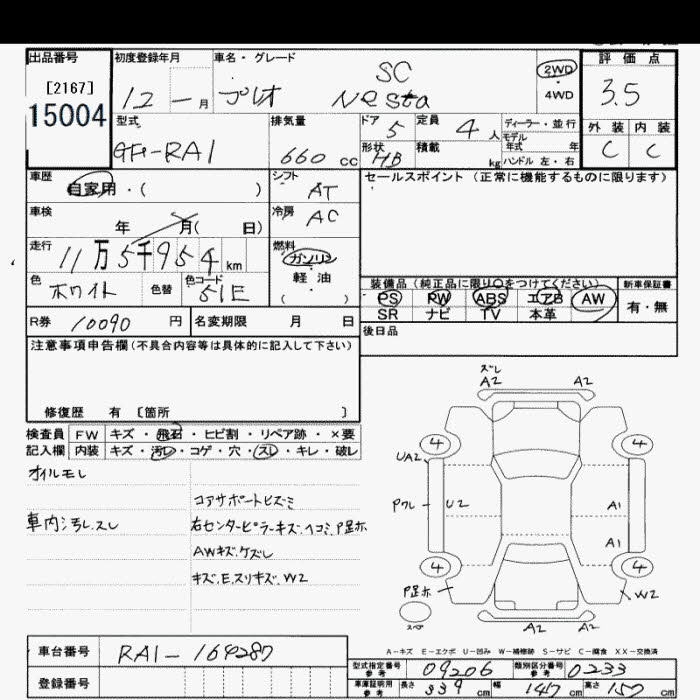 出品番号
[2167]
15004
初度登録年月
12 — 月
車名・グレード
プレオ
SC
Nesta
2WD
4WD
評価点
3.5
外装 内装
C C
型式
GH-RA1
排気量
660 cc
ドア
5
定員
4 人
形状
HB
積載
kg
ディーラー・並行
モデル
年式 年
ハンドル 左・右
車歴
自家用・( )
シフト
AT
セールスポイント（正常に機能するものに限ります）
車検
年 月( 日)
冷房
AC
走行
11万5千954 km
燃料
ガソリン
軽油
( )
色
ホワイト
色替
色コード
51E
装備品（純正品に限り○をつけてください）
PS PW ABS エアB AW
SR ナビ TV 本革
新車保証書
有・無
R券
10090 円
名変期限 月 日
後日品
注意事項申告欄(不具合内容等は具体的に記入して下さい)
修復歴 有 〔箇所 〕
検査員
記入欄
FW キズ・飛石・ヒビ割・リペア跡・×要
内装 キズ・汚レ・コゲ・穴・スレ・キレ・破レ
オイルモレ
コアサポートヒズミ
車内汚レ、スレ
右センターピラーキズ、ヘコミ、P足ホ
AWキズ、ケズレ
キズ、E、スリキズ、W2
ズレ
A2 A2
4 4
UA2
Pワレ U2
A1
A1
4 4
P足ホ
W2
スペ
A2 A2
A－キズ E－エクボ U－凹み W－補修跡 S－サビ C－腐食 XX－交換済
車台番号
RA1－164287
型式指定番号
参考
09206
類別区分番号
参考
0233
登録番号
車庫証明用
参考
長さ 339 cm 幅 147 cm 高さ 157 cm